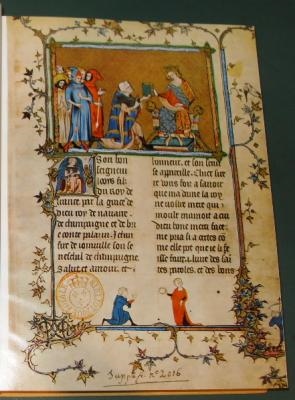 A Son bon
seigneur
looys filz
du roy de
france. par la grace de
dieu roy de nauarre.
de champaigne et de brie
conte palazin. Jehan
sire de ioinuille son se
neschal de champaigne
salut et amour. et
honneur. et son seruise
appareillie. Chier sire
ie vous foiz a sauoir
que ma dame la royne
vostre mere qui
moult mamoit a cui
dieu bone merci face.
me pria si a certes co
me elle pot que ie li fe
isse faire .i. liure des sai
tes paroles. et des bons
Suppl. f. no 2016